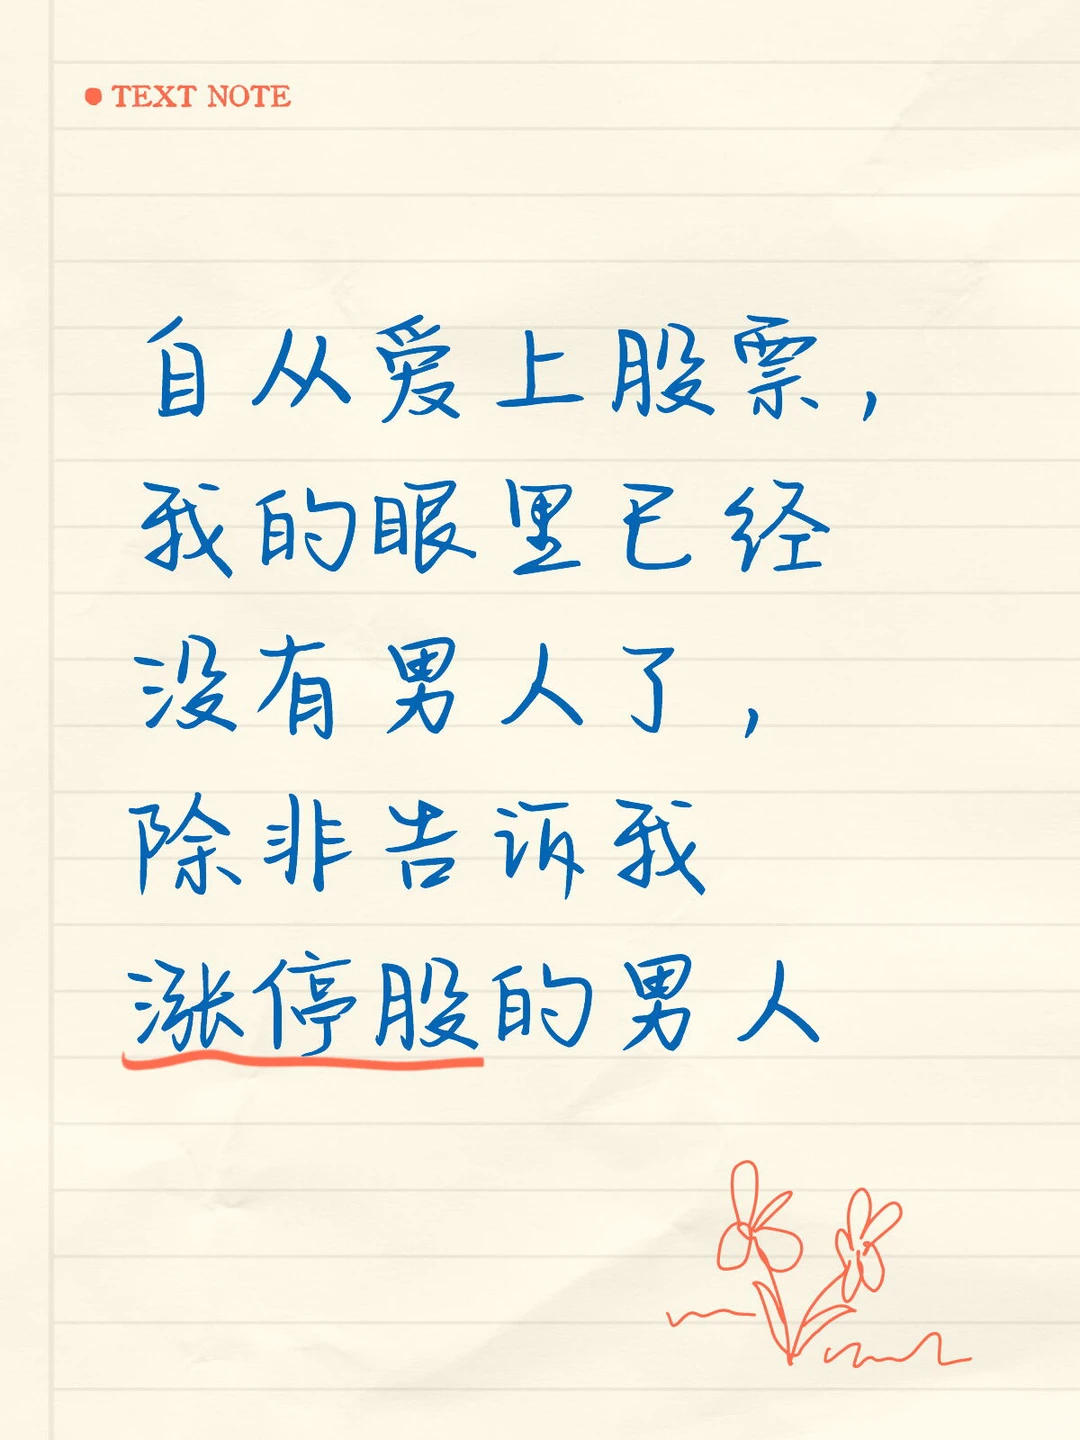 TEXT NOTE
自从爱上股票，
我的眼里已经
没有男人了，
除非告诉我
涨停股的男人